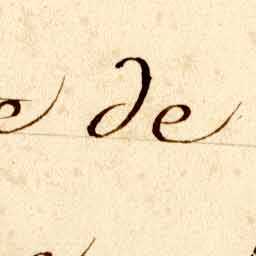 e de